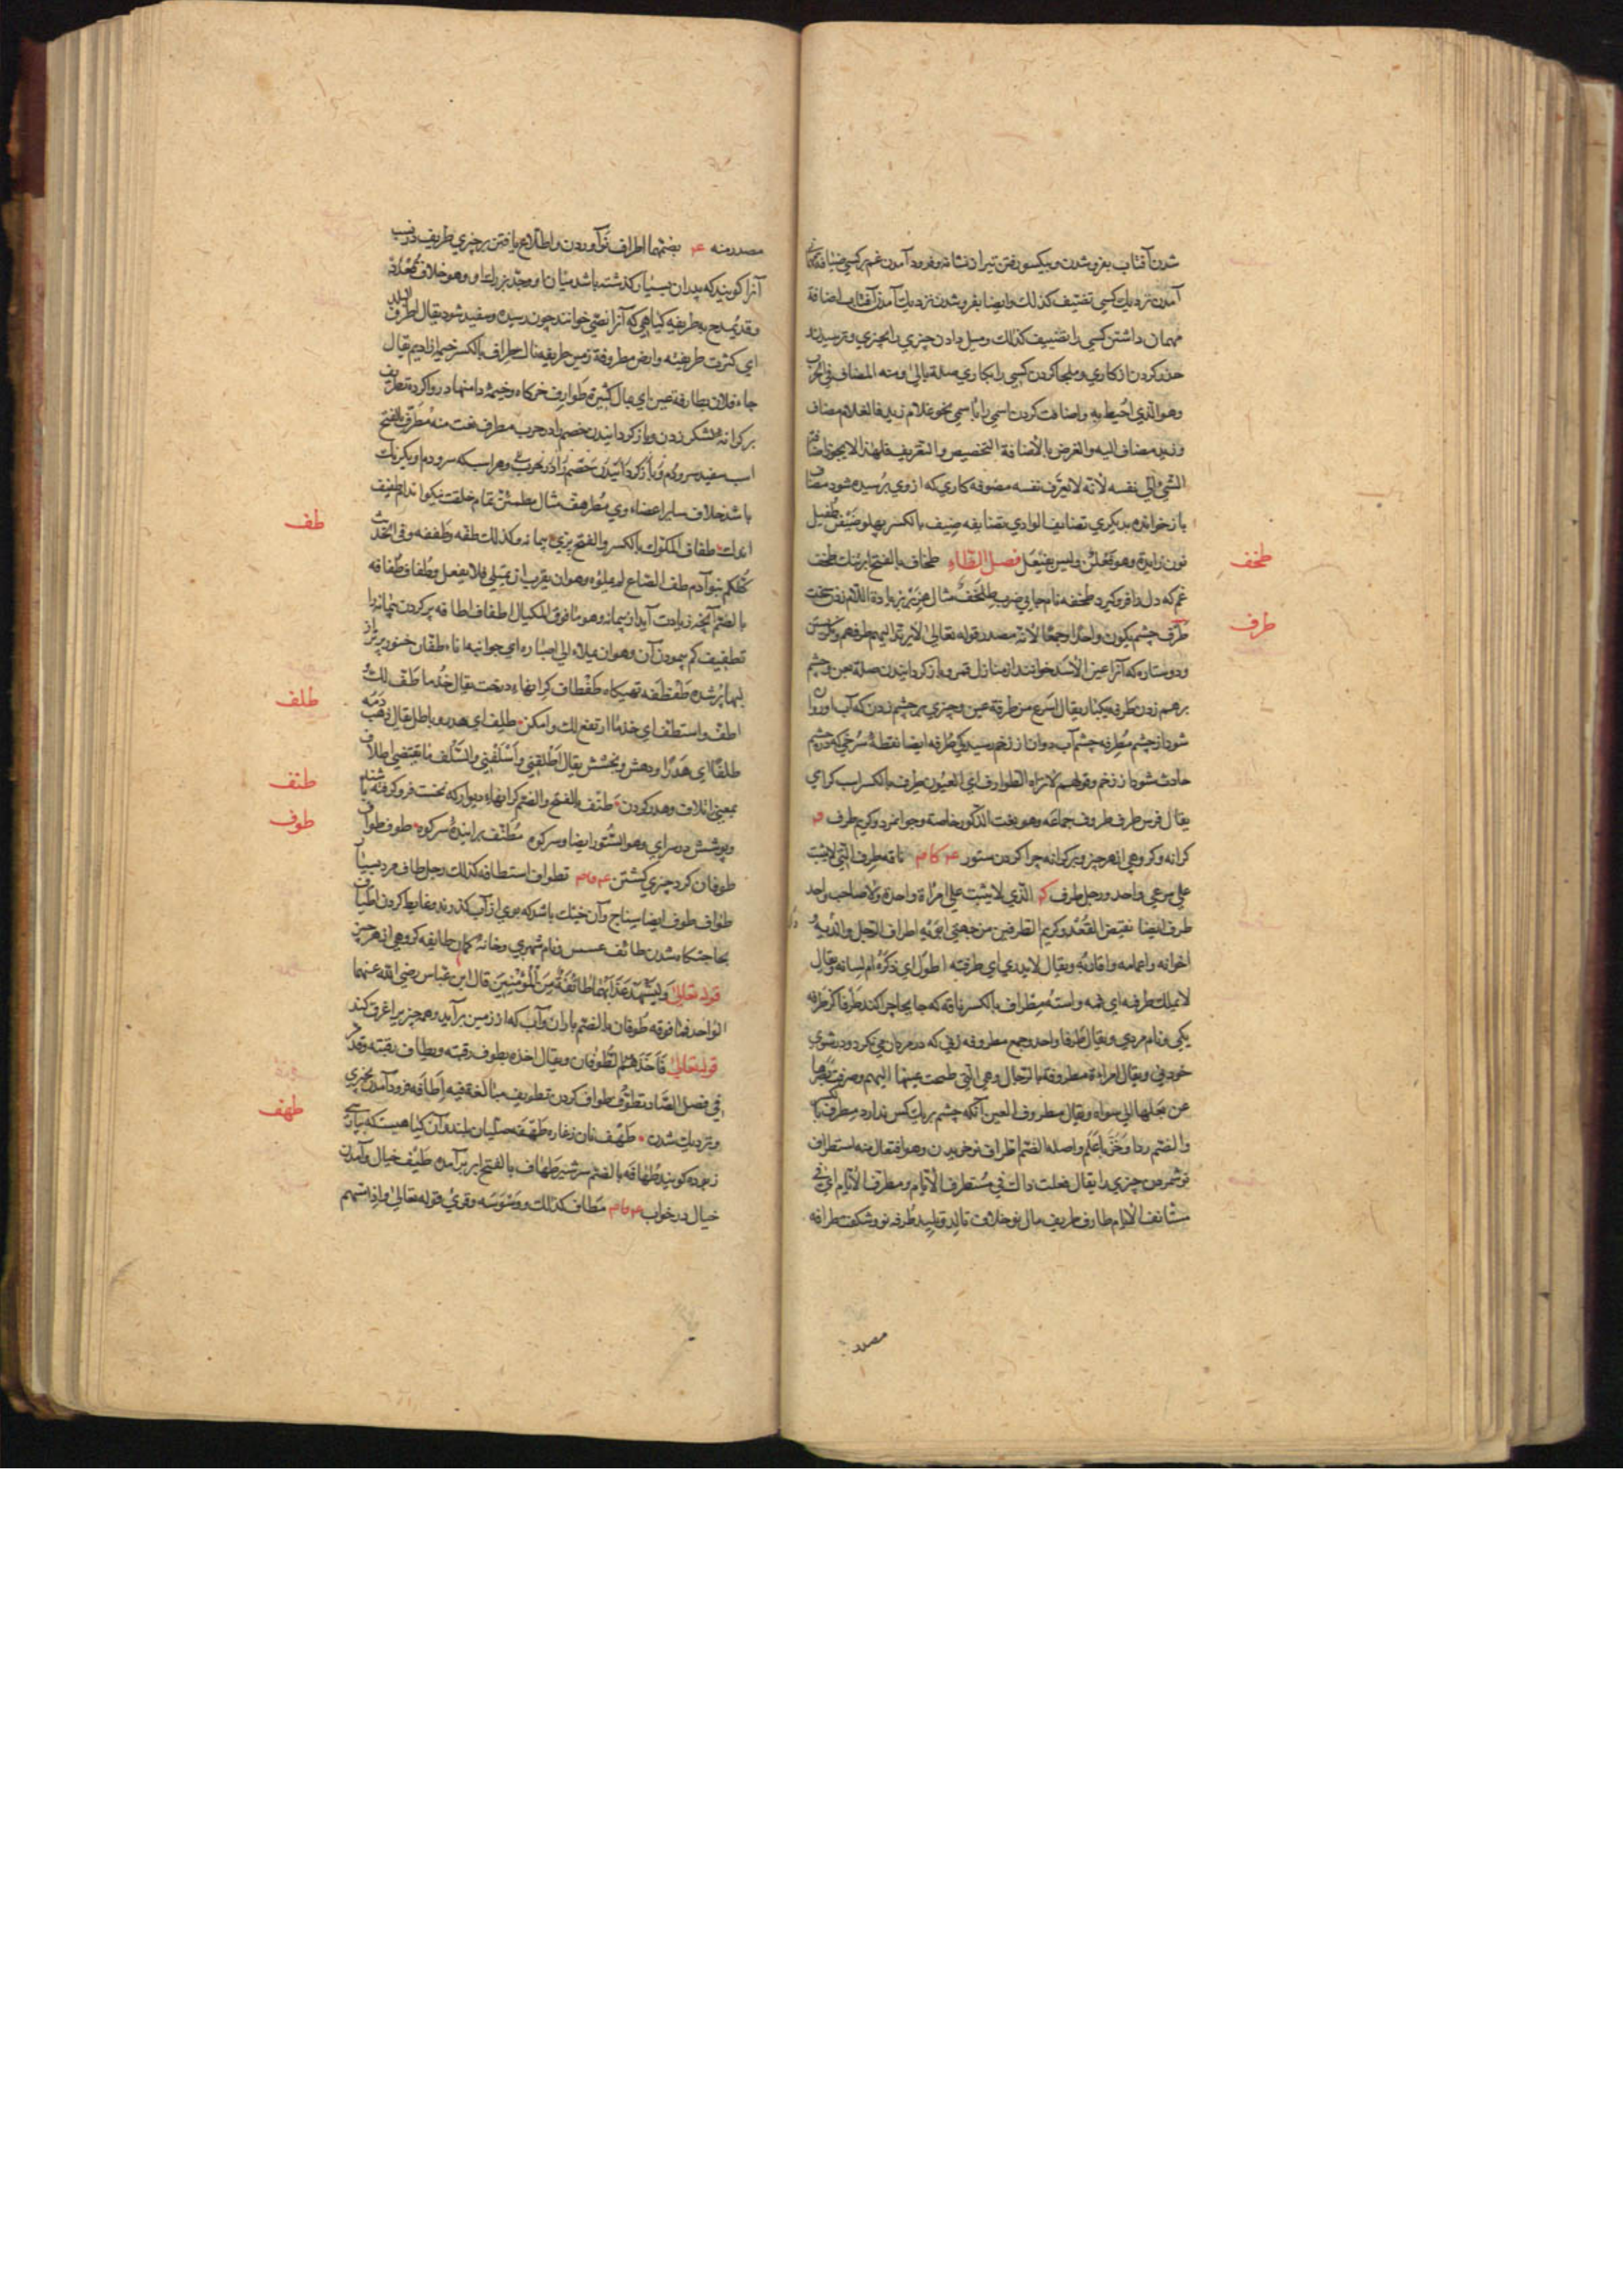 شدن آفتاب بغروب شدن و بیکسو رفتن تیر از نشانه و فرود آمدن غم بر کسی ضیافة
آمدن نزدیك کسی تضیّف کذلك وایضا بغروب شدن نزدیك آمدن آفتاب اضافة
مهمان داشتن کسی را تضییف کذلك ومیل دادن چیزی را بچیزی وترسیدن
حذر کردن از کاری وملجا کردن کسی را بکاری صلة بالی ومنه المضاف فی الحرب
وهو الذی احیط به واضافت کردن اسمی را باسمی نحو غلام زید فالغلام مضاف
وزید مضاف الیه والغرض بالاضافة التخصیص والتعریف فلهذا لایجوز اضافة
الشیء الی نفسه لانه لایعرف نفسه مضوفة کاری که از وی ترسیده شود مضاف
باز خوانده بدیگری تضایف الوادی تضایفه ضیف بالکسر پهلو ضیفن طفیل
نون زایدة وهو فعلن ولیس بفیعل فصل الطّاء طخاف بالفتح ابر تنك طخف
طخف
غم که دل را فرو گیرد طخفه نام جایی ضرب طلخف مثال هزبر بزیادة اللام زدن سخت
طرف چشم یکون واحدا وجمعا لانه مصدر قوله تعالی لایرتد الیهم طرفهم
طرف
ودو ستاره که آنرا عین الاسد خوانند از منازل قمر وباز گردانیدن صلة بعن وچشم
برهم زدن طرفه یکبار یقال اسرع من طرفة عین وچیزی بر چشم زدن که آب اورد
شود از چشم مطرفه چشم آب دوان از زخم رسیدگی طرفه ایضا نقطهٔ سرخی که در چشم
حادث شود از زخم وقولهم لا تراه الطوارف ای العیون طرف بالکسر اسب گرامی
یقال فرس طرف طروف جماعه وهو نعت الذکور خاصة وجوانمرد وکریم طرف
کرانه وگروهی از هر چیز وبر کرانه چرا کردن ستور ناقة طرف التی لا تثبت
علی مرعی واحد ورجل طرف الذی لا یثبت علی امراة واحدة ولا صاحب واحد
طرف ایضا نقیض القعدد وکریم الطرفین من جهتی ابویه اطراف الرجل والدیه و
اخوانه واعمامه واقاربه ویقال لا یدری ای طرفیه اطول ای ذکره ام لسانه یقال
لا یملك طرفیه ای فمه واسته مطراف بالکسر ناقه که جا بجا چرا کند طرفا گز طرفه
یکی ونام مردی ویقال طرفا واحد وجمع مطروفه زنی که در مردان می نگرد ودر شوی
خود نی ویقال امراءة مطروفة بالرجال وهی التی طمحت عینها الیهم وصرفت بصرها
عن بعلها الی سواه ویقال مطروف العین آنکه چشم بر یك کس ندارد مطرف بالکسر
والضم ردا وخز باعلم واصله الضم اطراف نو خریدن وهو افتعال منه استطراف
نو شمردن چیزی را یقال فعلت ذاك فی مستطرف الایام ومطرف الایام ای فی
مستانف الایام طارف طریف مال نو خلاف تالد وتلید طرفه نو وشگفت طرافه
مصدر
مصدر منه بضمهما اطراف نو آوردن واطلاع یافتن بر چیزی طریف در نسب
آنرا گویند که پدران بسیار گذشته باشد میان او وجد بزرك او وهو خلاف قعدد
وقد یمدح به طریفه گیاهی که آنرا نصی خوانند چون رسیده وسفید شود یقال اطرف البلد
ای کثرت طریفته وارض مطروفة زمین طریفه ناك طراف بالکسر خیمه از ادیم یقال
جاء فلان بطارفة عین ای بمال کثیر طوارف خرگاه وخیمه دامنها در وا کرده تطریف
بر کرانه لشکر زدن وباز گردانیدن خصم را در حرب مطرف نعت منه مطرف بالفتح
اسب سفید سر ودم وباز گردانیدن خصم را در حرب وهر اسب که سر ودم او یکرنك
باشد خلاف سایر اعضاء وی مطرهف مثال مطمئن تمام خلقت نیکو اندام طفیف
اندك طفاف المکوك بالکسر والفتح پری پیمانه وکذلك طفه وطففه وفی الحدیث
طف
کلکم بنو آدم طف الصاع لم تملؤه وهو ان یقرب ان یمتلی فلا یفعل وطفاف طفافه
بالضم آنچه زیادت آید از پیمانه وهو ما فوق المکیال اطفاف اطافه پر کردن پیمانه را
تطفیف کم پیمودن آن وهو ان یملاء الی اصباره ای جوانبه اناء طفان خنور پر تر از
لبها پر شده طفطفه تهیگاه طفطاف کرانهاء درخت یقال خذ ما طف لك
اطف واستطف ای خذ ما ارتفع لك وامکن طلف ای هدر وباطل یقال ذهب دمه
طلف
طلفا ای هدرا ودهش وبخشش یقال اطلفنی واسلفنی والسلف ما یقتضی اطلاف
بمعنی اتلاف وهدر کردن طنف بالفتح والضم کرانهاء دیوار که بخشت فرو گرفته باشند
طنف
وپوشش در سرای وهو الستور ایضا وسر کوه مطنف برآینده سر کوه طوف طواف
طوف
طوفان گرد چیزی گشتن تطواف استطافه کذلك رجل طاف مرد بسیار
طواف طوف ایضا سیناج وآن خیك باشد که بروی از آب گذرند وغایط کردن اطیاف
بحاجتگاه شدن طائف عسس ونام شهری وخانهٔ کمان طایفه گروهی از هر چیز
قوله تعالی ولیشهد عذابهما طائفة من المؤمنین قال ابن عباس رضی الله عنهما
الواحد فما فوقه طوفان بالضم باران وآب که از زمین برآید وهمه چیز را غرق کند
قوله تعالی فاخذهم الطوفان ویقال اخذه بطوف رقبته وبطاف رقبته وقد ذکر
فی فصل الصاد تطوف طواف کردن تطویف مبالغة فیه اطافه فرود آمدن بچیزی
ونزدیك شدن طهف نان زغاره طهفه صلّیان بلند وآن گیاهیست که بپارسی
طهف
زمرده گویند طهافه بالضم سر شیر طهاف بالفتح ابر برآمده طیف خیال وآمدن
خیال در خواب مطاف کذلك ووسوسه وقری قوله تعالی واذا مسهم